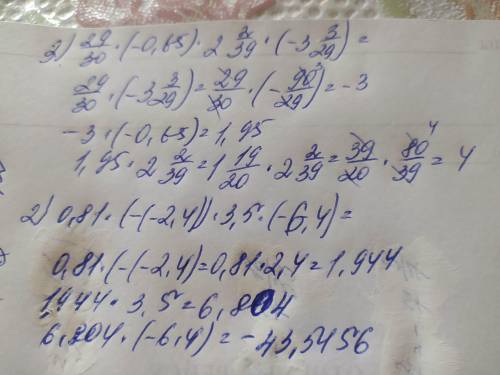 3) 29/30 · (-0,65) · 2 2/39 · (-3 3/29) =
29/30 · (-3 3/29) = 29/30 · (- 90³/29) = -3
-3 · (-0,65) = 1,95
1,95 · 2 2/39 = 1 19/20 · 2 2/39 = 39/20 · 80⁴/39 = 4
2) 0,81 · (-(-2,4)) · 3,5 · (-6,4) =
0,81 · (-(-2,4) = 0,81 · 2,4 = 1,944
1,944 · 3,5 = 6,804
6,804 · (-6,4) = -43,5456